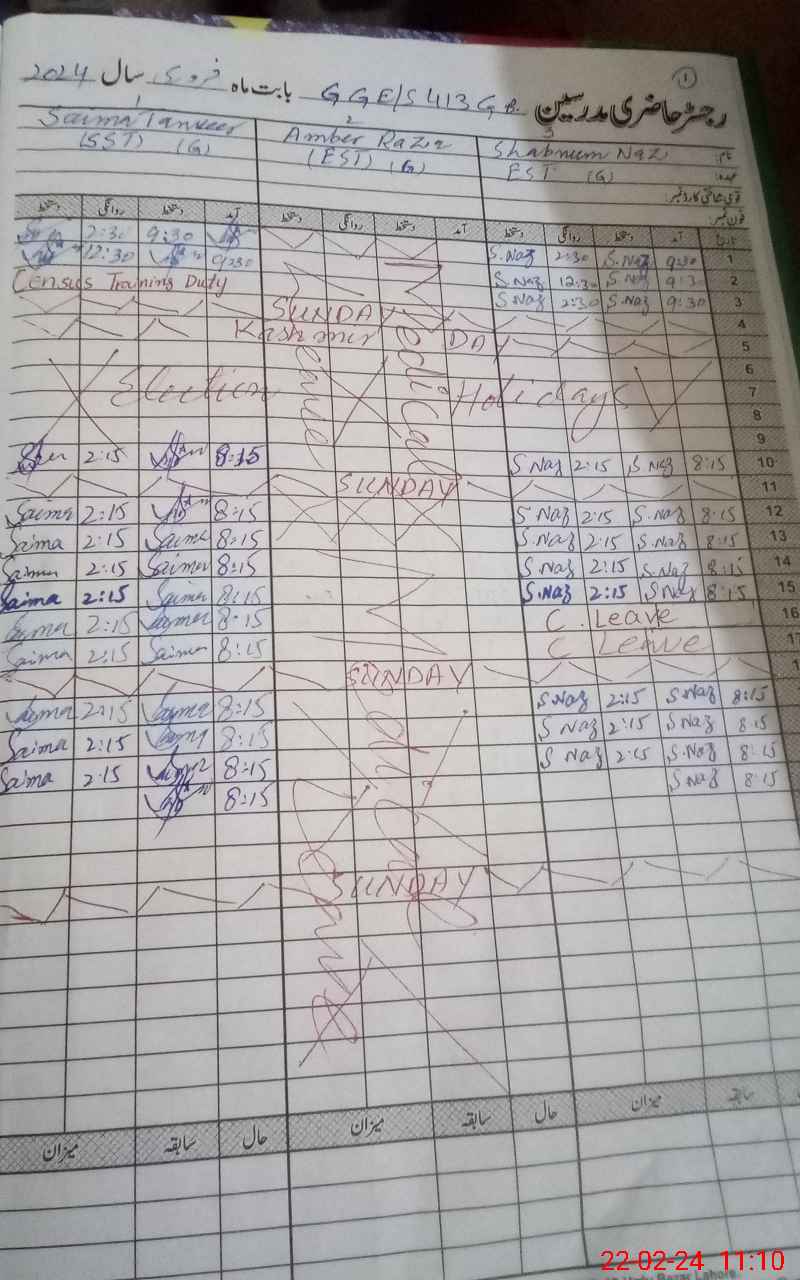 رجسٹر حاضری مدرسین GGE/S 413 G.B. بابت ماہ فروری سال 2024
1
Saima Tanveer
(SST) (G)
2
Amber Razia
(EST) (G)
3
Shabnum Naz
EST (G)
نام:
عہدہ:
قومی شناختی کارڈ نمبر:
فون نمبر:
دستخط روانگی دستخط آمد دستخط روانگی دستخط آمد دستخط روانگی دستخط آمد تاریخ
2:30 9:30 S.Naz 2:30 S.Naz 9:30 1
12:30 9:30 S.Naz 12:30 S.Naz 9:30 2
Census Training Duty S.Naz 2:30 S.Naz 9:30 3
SUNDAY 4
Kashmir DAY 5
6
Election Holidays 7
8
9
2:15 8:15 S.Naz 2:15 S.Naz 8:15 10
SUNDAY 11
Saima 2:15 8:15 S.Naz 2:15 S.Naz 8:15 12
Saima 2:15 Saima 8:15 S.Naz 2:15 S.Naz 8:15 13
Saima 2:15 Saima 8:15 S.Naz 2:15 S.Naz 8:15 14
Saima 2:15 Saima 8:15 S.Naz 2:15 S.Naz 8:15 15
Saima 2:15 Saima 8:15 C. Leave 16
Saima 2:15 Saima 8:15 C Leave 17
SUNDAY
Saima 2:15 Saima 8:15 S.Naz 2:15 S.Naz 8:15
Saima 2:15 Saima 8:15 S Naz 2:15 S.Naz 8:15
Saima 2:15 Saima 8:15 S Naz 2:15 S.Naz 8:15
8:15 S Naz 8:15
SUNDAY
Medical
Leave
میزان سابقہ حال میزان سابقہ حال میزان سابقہ
22-02-24 11:10